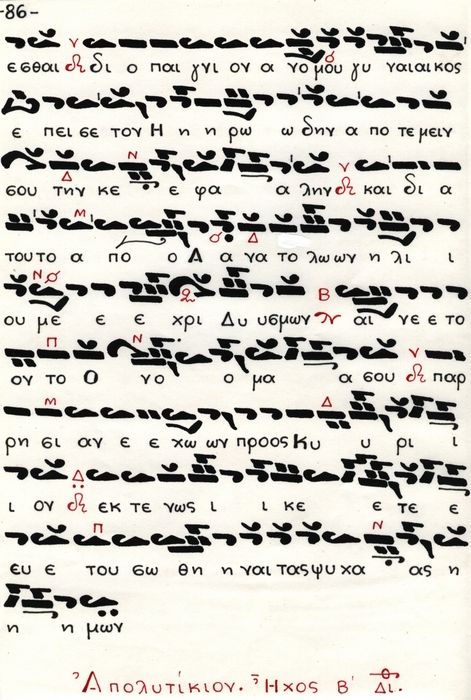 -86-
εσθαι δι ο παι γνι ον α νο μου γυ ναι αι κος
ε πει σε τον Η η η ρω ω δην α πο τε μειν
σου την κε ε φα α λην και δι α
του το α πο ο Α α να το λω ων η λι ι
ου με ε ε χρι Δυ υσμων αι νε ε το
ον το Ο νο ο μα α σου παρ
ρη σι αν ε ε χω ων προος Κυ υ ρι ι
ι ον εκ τε νως ι ι κε ε τε ε
ευ ε του σω θη η ναι τας ψυ χα ας η
η η μων
Ἀπολυτίκιον. Ἦχος Β΄ Δι.